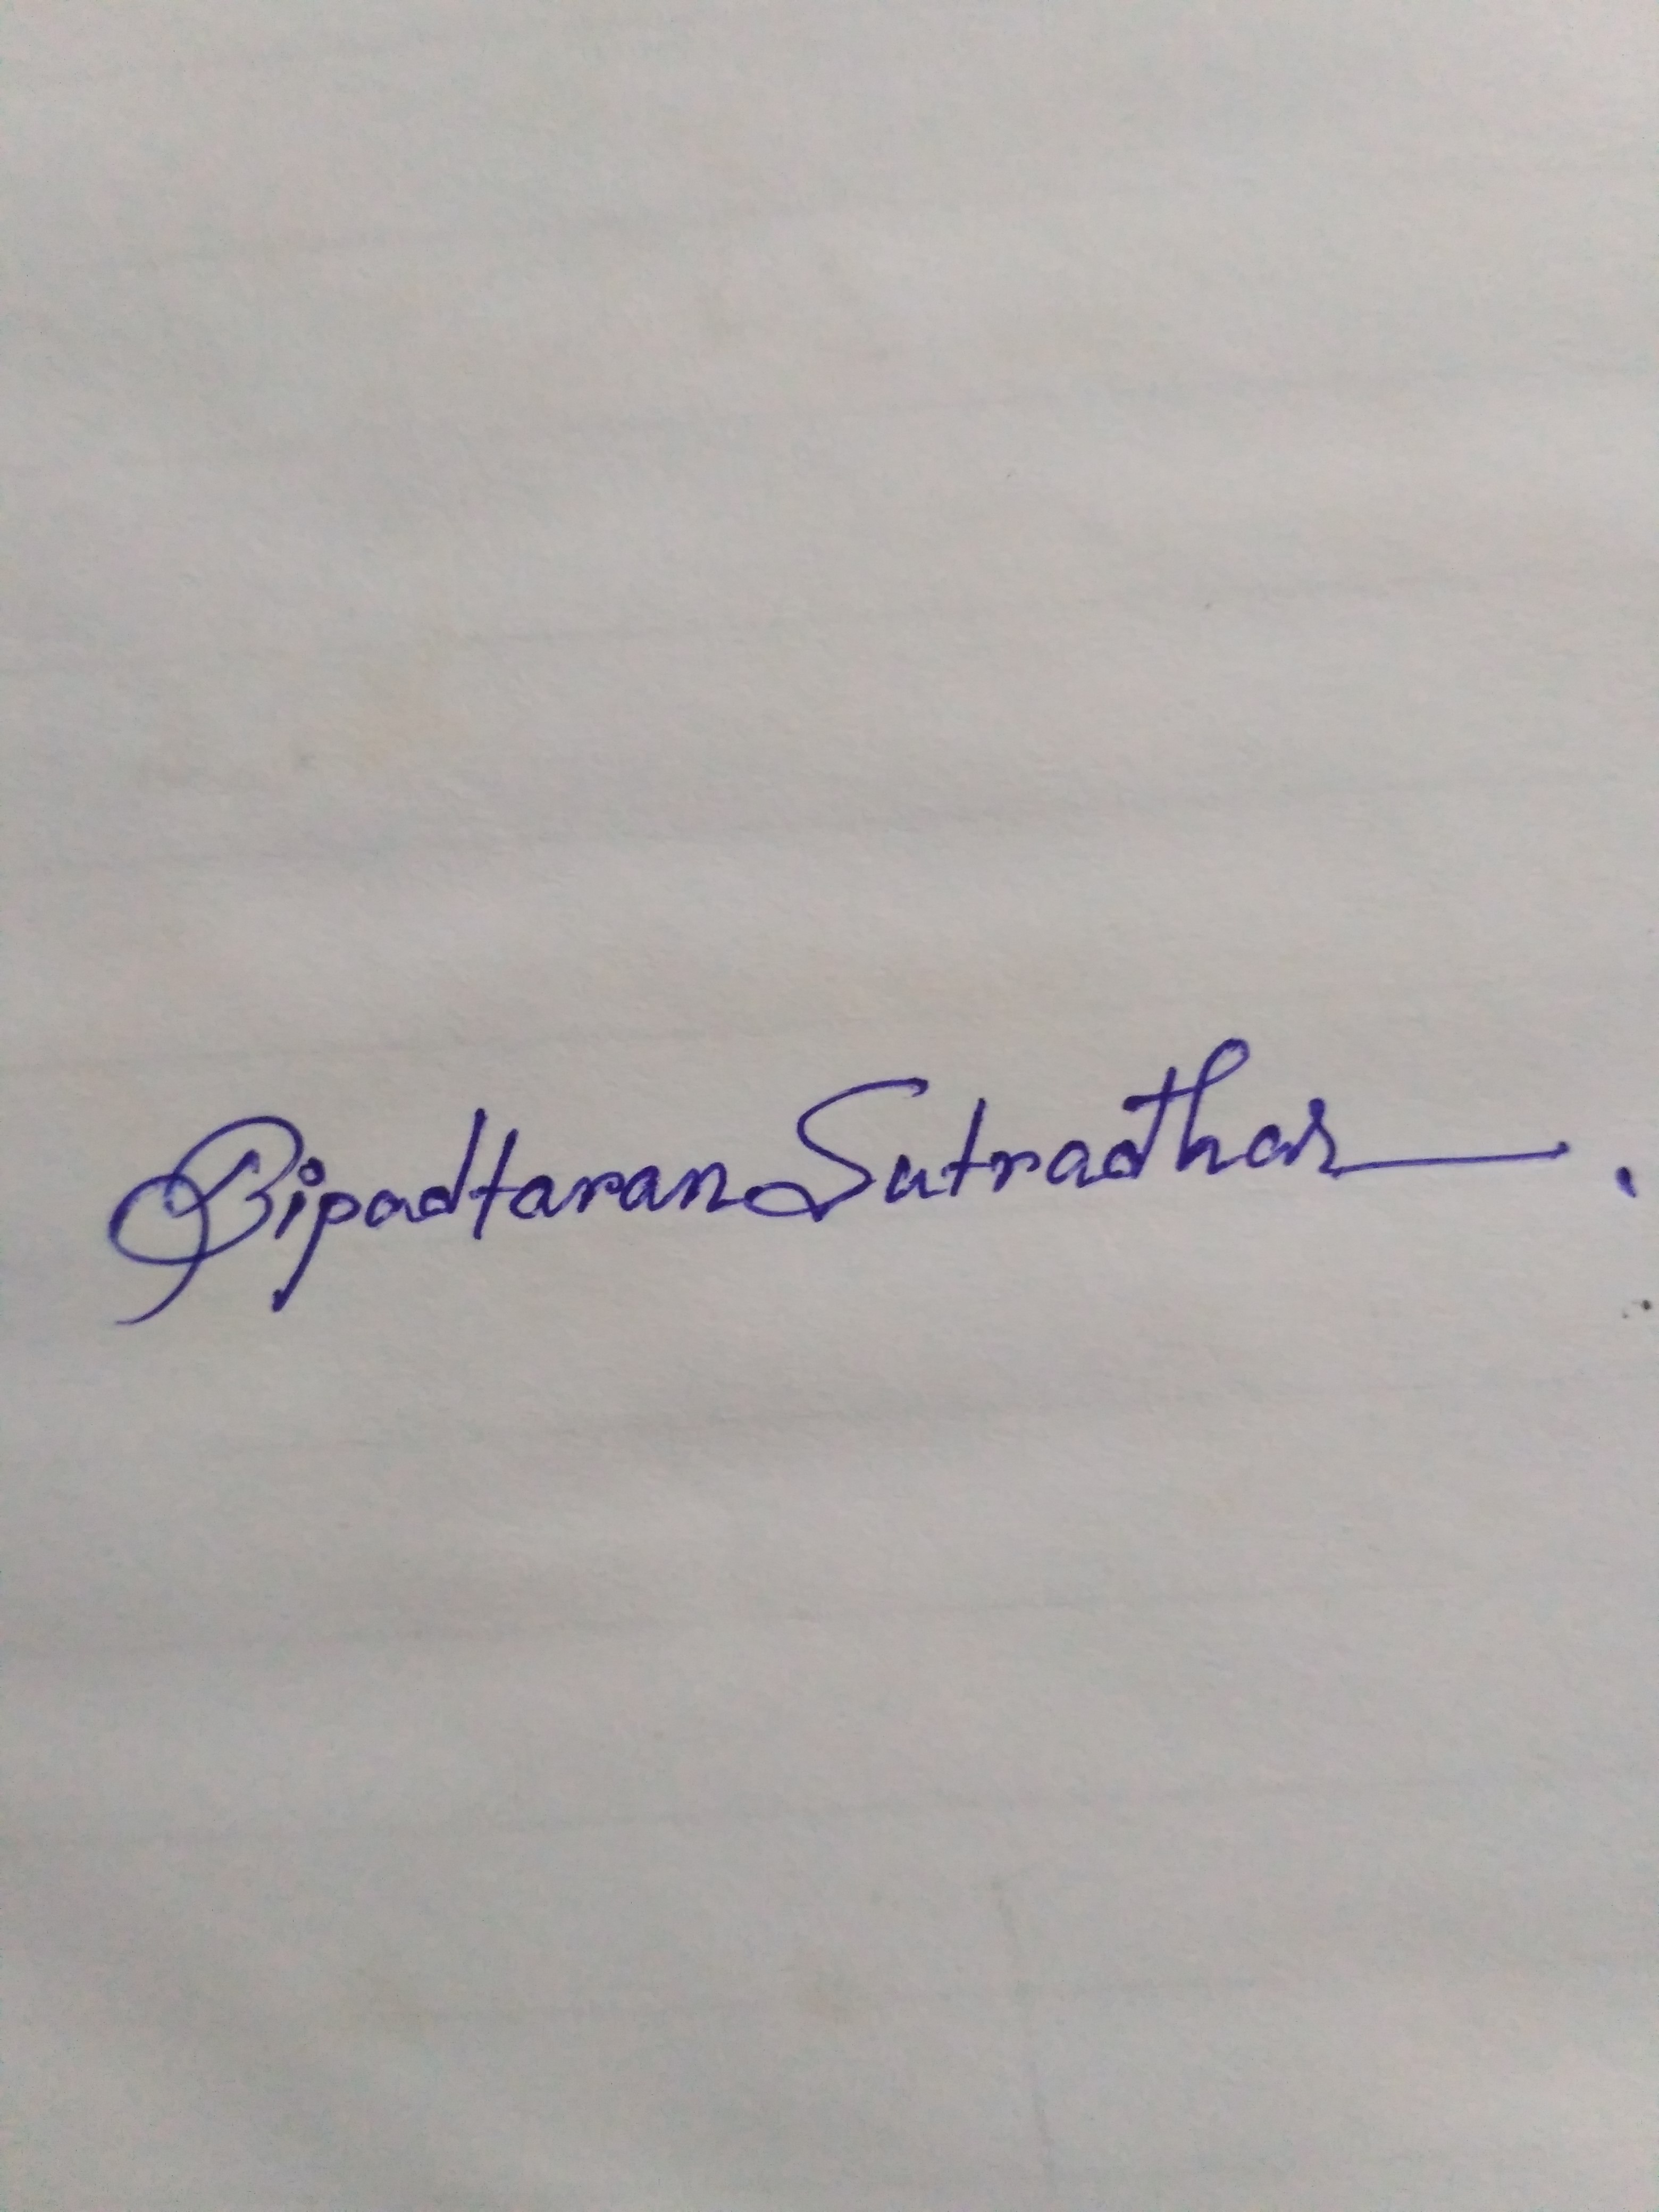 Bipadtaran Sutradhar